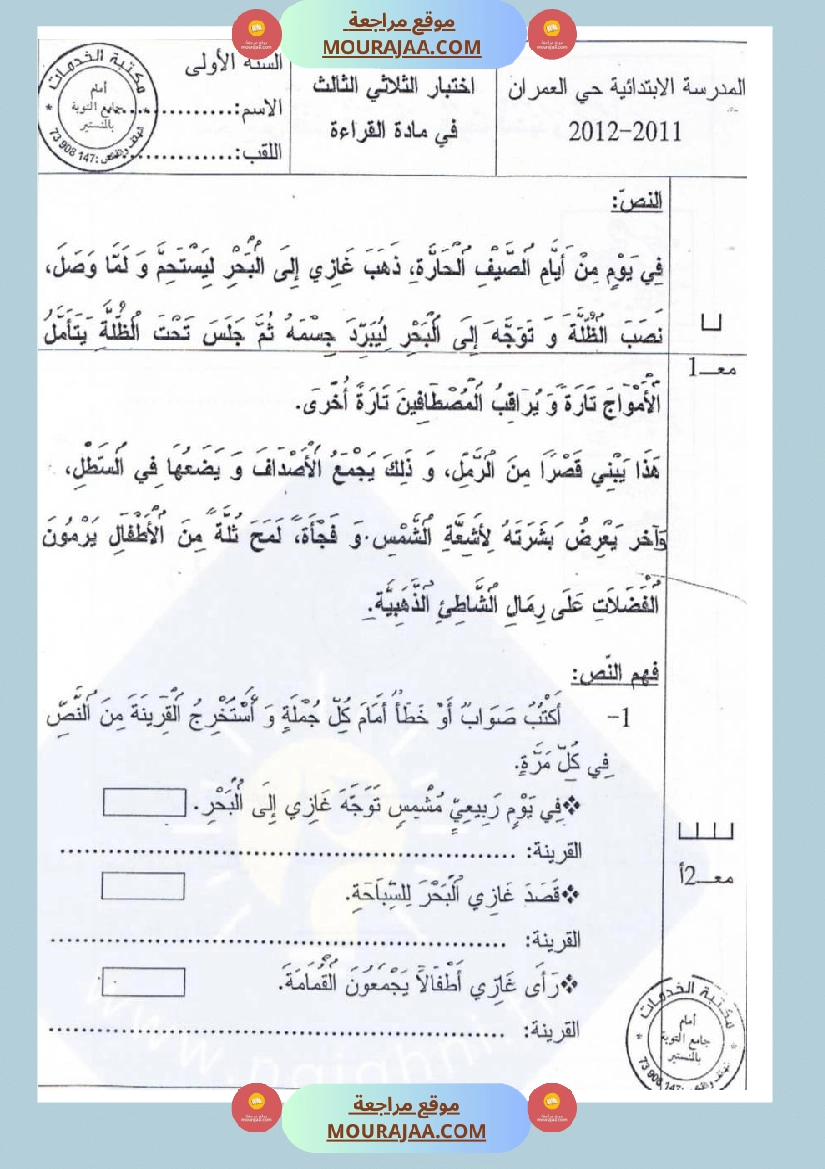 موقع مراجعة
MOURAJAA.COM
المدرسة الابتدائية حي العمران
2012-2011
اختبار الثلاثي الثالث
في مادة القراءة
السنة الأولى
الاسم:..............
اللقب:..............
مكتبة الخدمات
أمام
جامع التوبة
بالمنستير
73 908 147
النص:
فِي يَوْمٍ مِنْ أَيَّامِ الصَّيْفِ الْحَارَّةِ، ذَهَبَ غَازِي إِلَى الْبَحْرِ لِيَسْتَحِمَّ وَ لَمَّا وَصَلَ،
نَصَبَ الظُّلَّةَ وَ تَوَجَّهَ إِلَى الْبَحْرِ لِيُبَرِّدَ جِسْمَهُ ثُمَّ جَلَسَ تَحْتَ الظُّلَّةِ يَتَأَمَّلُ
معـ1
الأَمْوَاجَ تَارَةً وَ يُرَاقِبُ الْمُصْطَافِينَ تَارَةً أُخْرَى.
هَذَا يَبْنِي قَصْرًا مِنَ الرَّمْلِ، وَ ذَلِكَ يَجْمَعُ الأَصْدَافَ وَ يَضَعُهَا فِي السَّطْلِ،
وَآخَر يَعْرِضُ بَشَرَتَهُ لِأَشِعَّةِ الشَّمْسِ. وَ فَجْأَةً، لَمَحَ ثُلَّةً مِنَ الأَطْفَالِ يَرْمُونَ
الْفَضَلَاتِ عَلَى رِمَالِ الشَّاطِئِ الذَّهَبِيَّةِ.
فهم النّص:
1- أَكْتُبُ صَوَابٌ أَوْ خَطَأٌ أَمَامَ كُلِّ جُمْلَةٍ وَ أَسْتَخْرِجُ الْقَرِينَةَ مِنَ النَّصِّ
فِي كُلِّ مَرَّةٍ.
❖ فِي يَوْمٍ رَبِيعِيٍّ مُشْمِسٍ تَوَجَّهَ غَازِي إِلَى الْبَحْرِ.
القرينة: ..................................................
معـ2أ
❖ قَصَدَ غَازِي الْبَحْرَ لِلسِّبَاحَةِ.
القرينة: ..................................................
❖ رَأَى غَازِي أَطْفَالاً يَجْمَعُونَ الْقُمَامَةَ.
القرينة: ..................................................
مكتبة الخدمات
أمام
جامع التوبة
بالمنستير
موقع مراجعة
MOURAJAA.COM